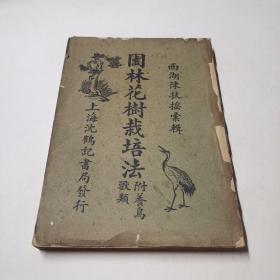 西湖陳扶搖彙輯
園林花樹栽培法
附養鳥
獸類
上海沈鶴記書局發行